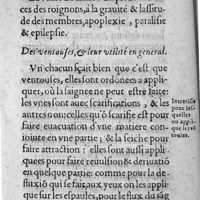 ces des roignons, à la grauité & lassitu-
de des membres, apoplexie, paralisie
& epilepsie.
Des ventouses, & leur vtilité en general.
Vn chacun sçait bien que c'est que
ventouses, elles sont ordonees a appli-
quer, où la saignee ne peut estre faite:
les vnes sont auec scarifications, & les
autres non: celles qu'ō scarifie est pour
faire euacuation d'vne matiere con-
iointe en vne partie, & la seiche pour
faire attraction: elles sont aussi appli-
quees pour faire reuulsion & deriuatiō
en quelque partie: comme pour la de-
fluxiō qui se fait aux yeux on les appli-
que sur les espaules, pour le flux du sāg
Intentiōs
pour les-
quelles
on appli-
que les vē
touses.